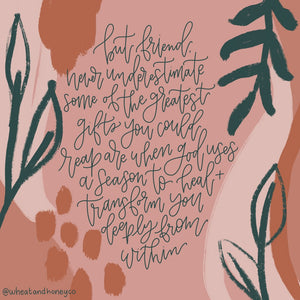 but friend,
never underestimate
some of the greatest
gifts you could
reap are when god uses
a season to heal +
transform you
deeply from
within.
@wheatandhoneyco